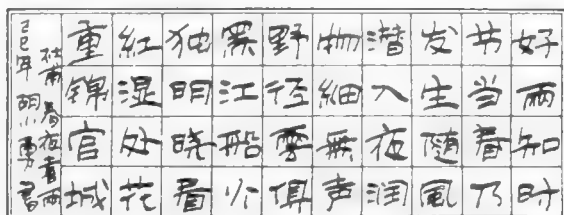 好雨知时
节当春乃
发生随風
潜入夜润
物細無声
野径雲俱
黑江船火
独明晓看
紅湿处花
重锦官城
杜甫 春夜喜雨
己巳年 胡小勇 書